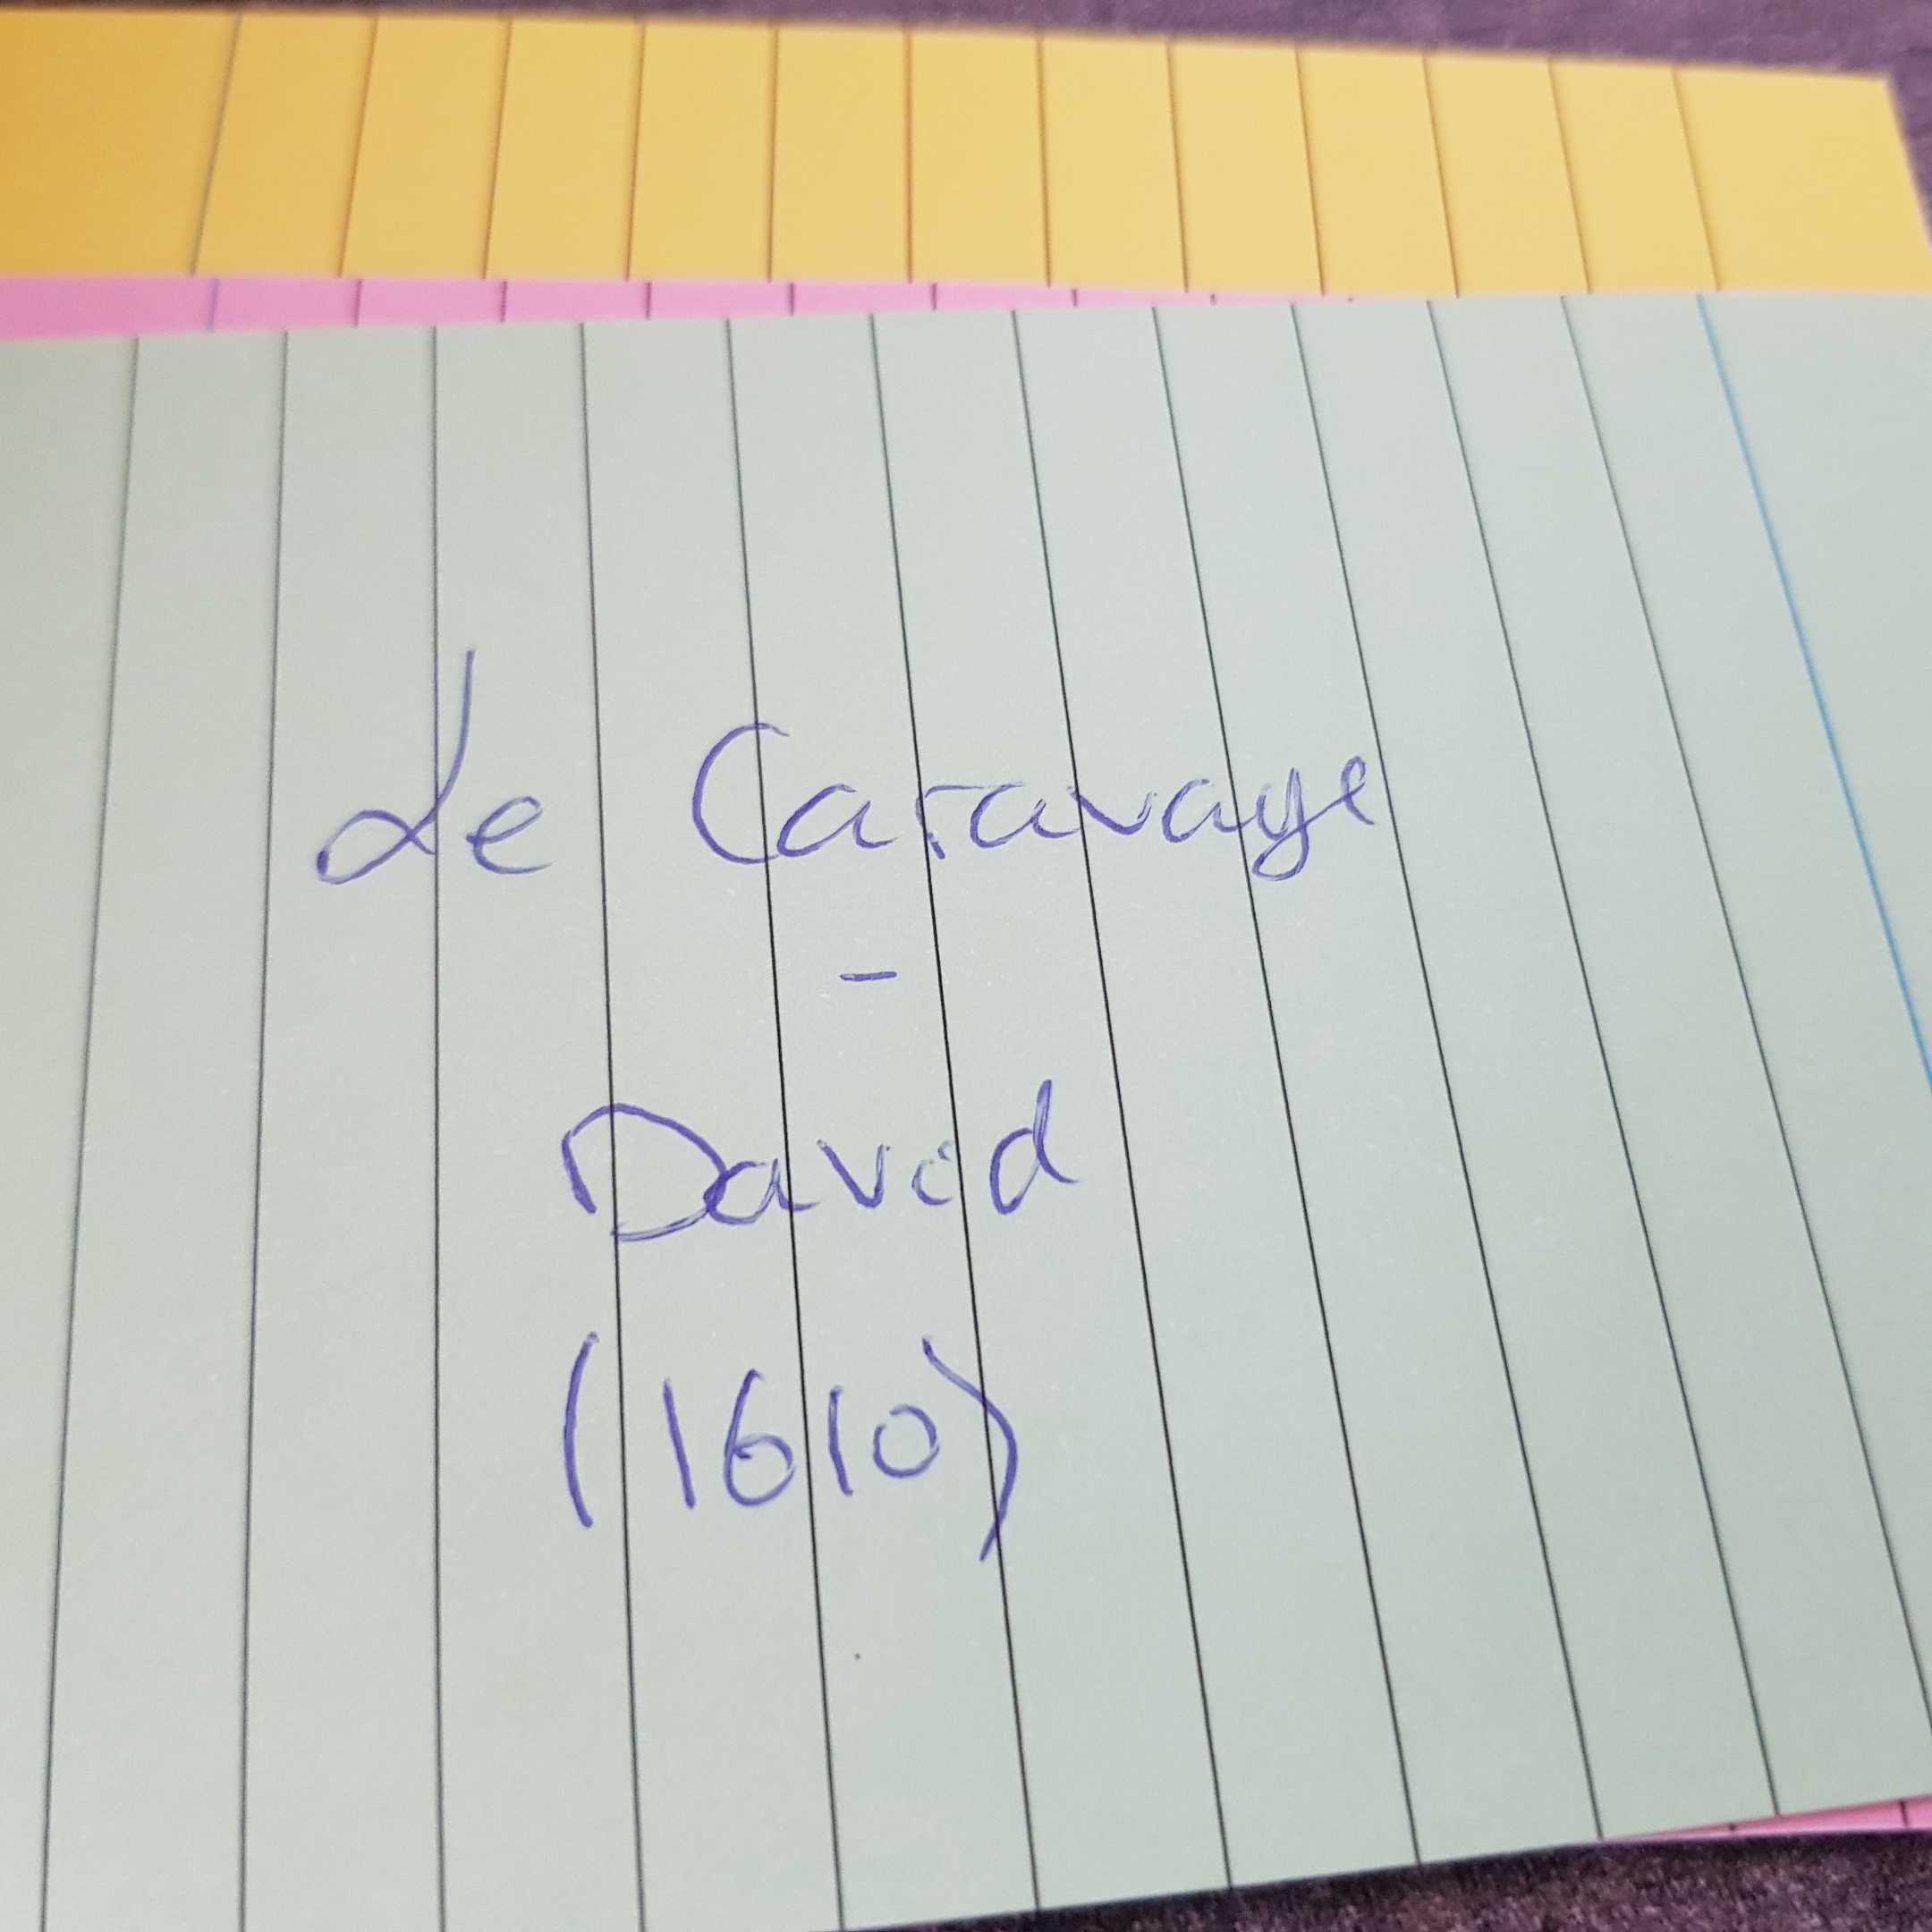 Le Caravage
-
David
(1610)